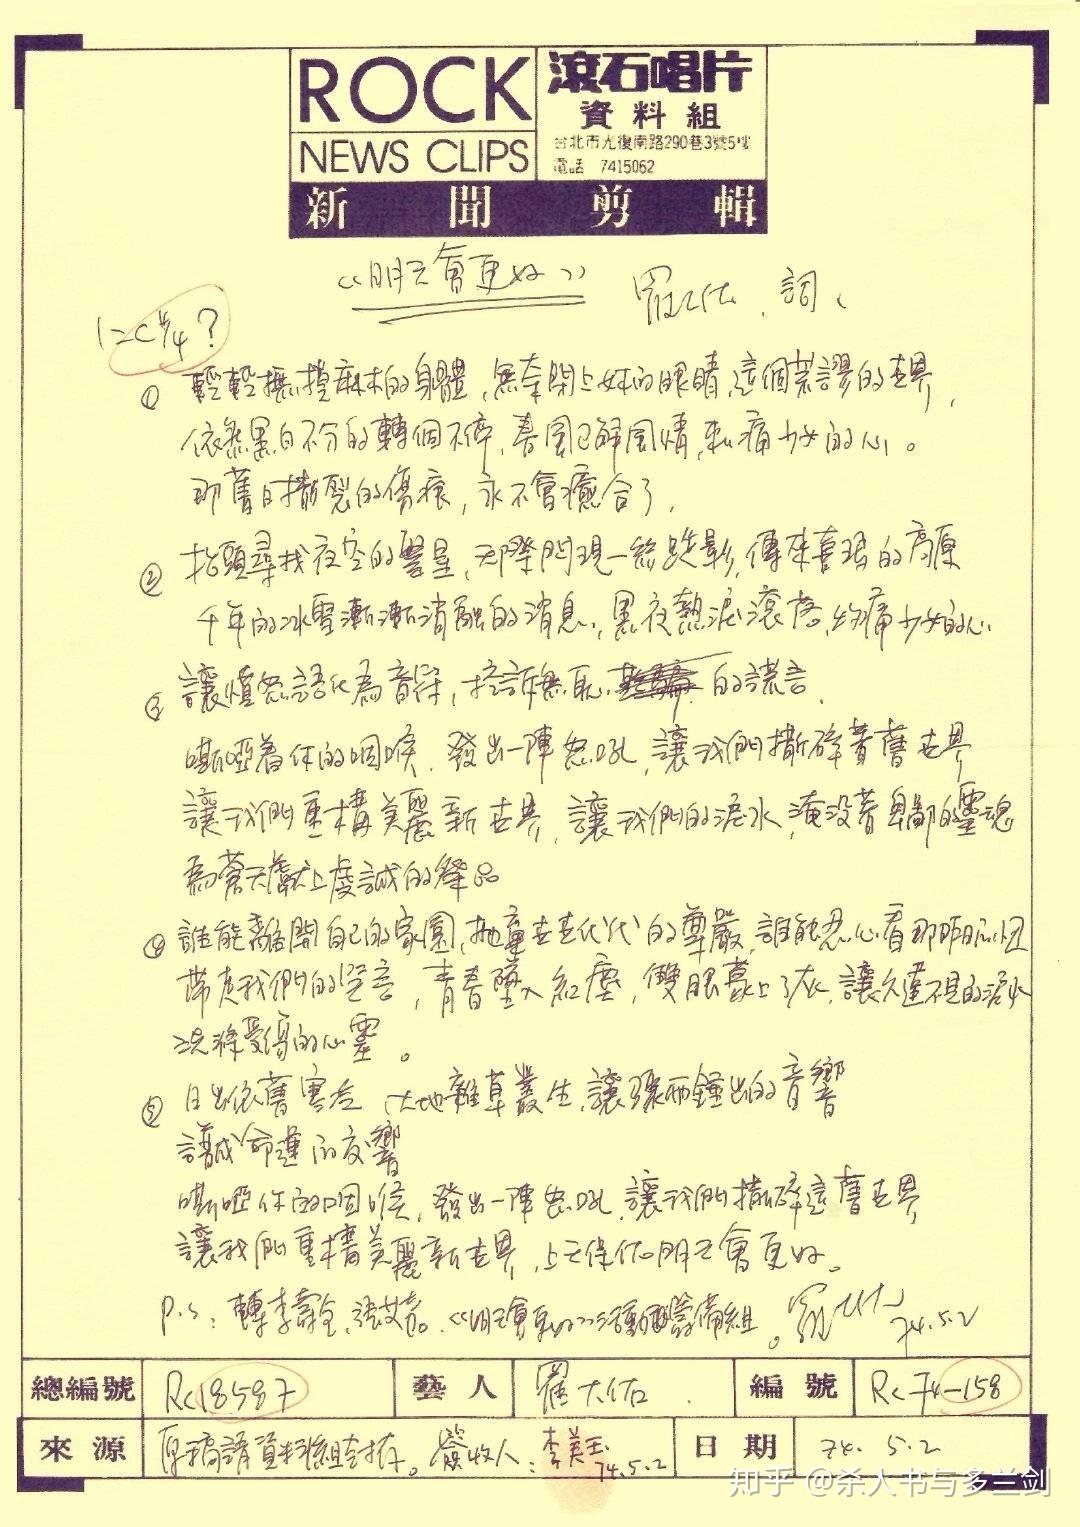 ROCK
NEWS CLIPS
滾石唱片
資料組
台北市光復南路290巷3號5樓
電話 7415062
新聞剪輯
《明天會更好》 羅大佑.詞
1=C 4/4?
① 輕輕撫摸麻木的身體,無奈閉上妳的眼睛,這個荒謬的世界,
依然黑白不分的轉個不停,春風已解風情,刺痛少女的心。
那舊日撕裂的傷痕,永不會癒合了,
② 抬頭尋找夜空的繁星,天際閃現一絲蹤影,傳來喜瑪的高原
千年的冰雪漸漸消融的消息,黑夜熱淚滾落,灼痛少女的心
③ 讓憤怒話化為音符,控訴無恥 的謊言.
嘶啞著你的咽喉,發出一陣怒吼,讓我們撕碎著舊世界
讓我們重構美麗新世界,讓我們的淚水,淹沒著卑鄙的靈魂
為蒼天獻上虔誠的祭品
④ 誰能離開自己的家園,拋棄世世代代的尊嚴,誰能忍心看那昨日的
帶走我們的,青春墜入紅塵,雙眼蒙上了灰,讓久違不見的淚水
洗滌受傷的心靈。
⑤ 日出依舊寒冷,大地雜草叢生,讓鐘出的音響
譜成命運的交響
嘶啞你的咽喉,發出一陣怒吼,讓我們撕碎這舊世界
讓我們重構美麗新世界,上天保佑明天會更好。
P.S:轉李壽全,張艾嘉。《明天會更好》活動籌備組。羅大佑 74.5.2
總編號 Rc18587 藝人 羅大佑. 編號 Rc74-158
來源 原稿請資料組封存。簽收人:李美玉 74.5.2 日期 74. 5. 2
知乎 @杀人书与多兰剑